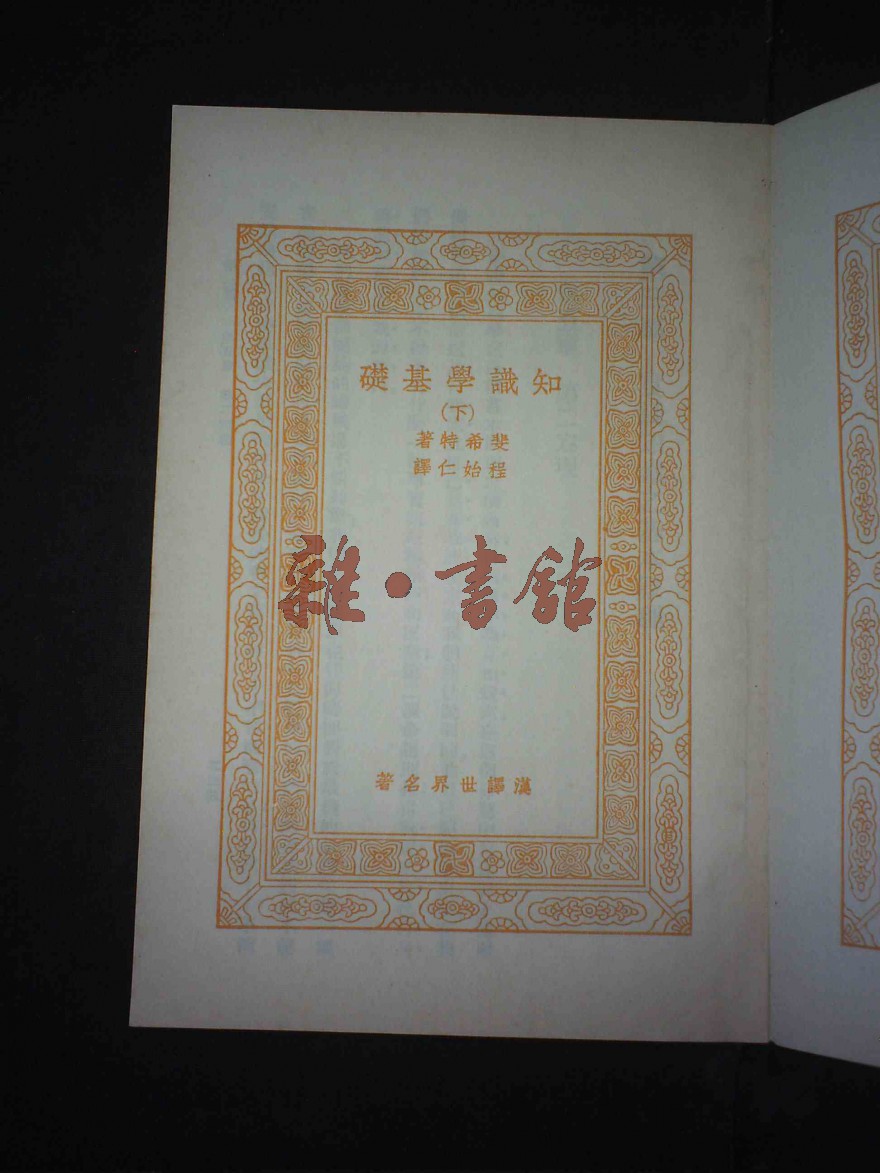 知識學基礎
(下)
斐希特著
程始仁譯
雜·書館
漢譯世界名著